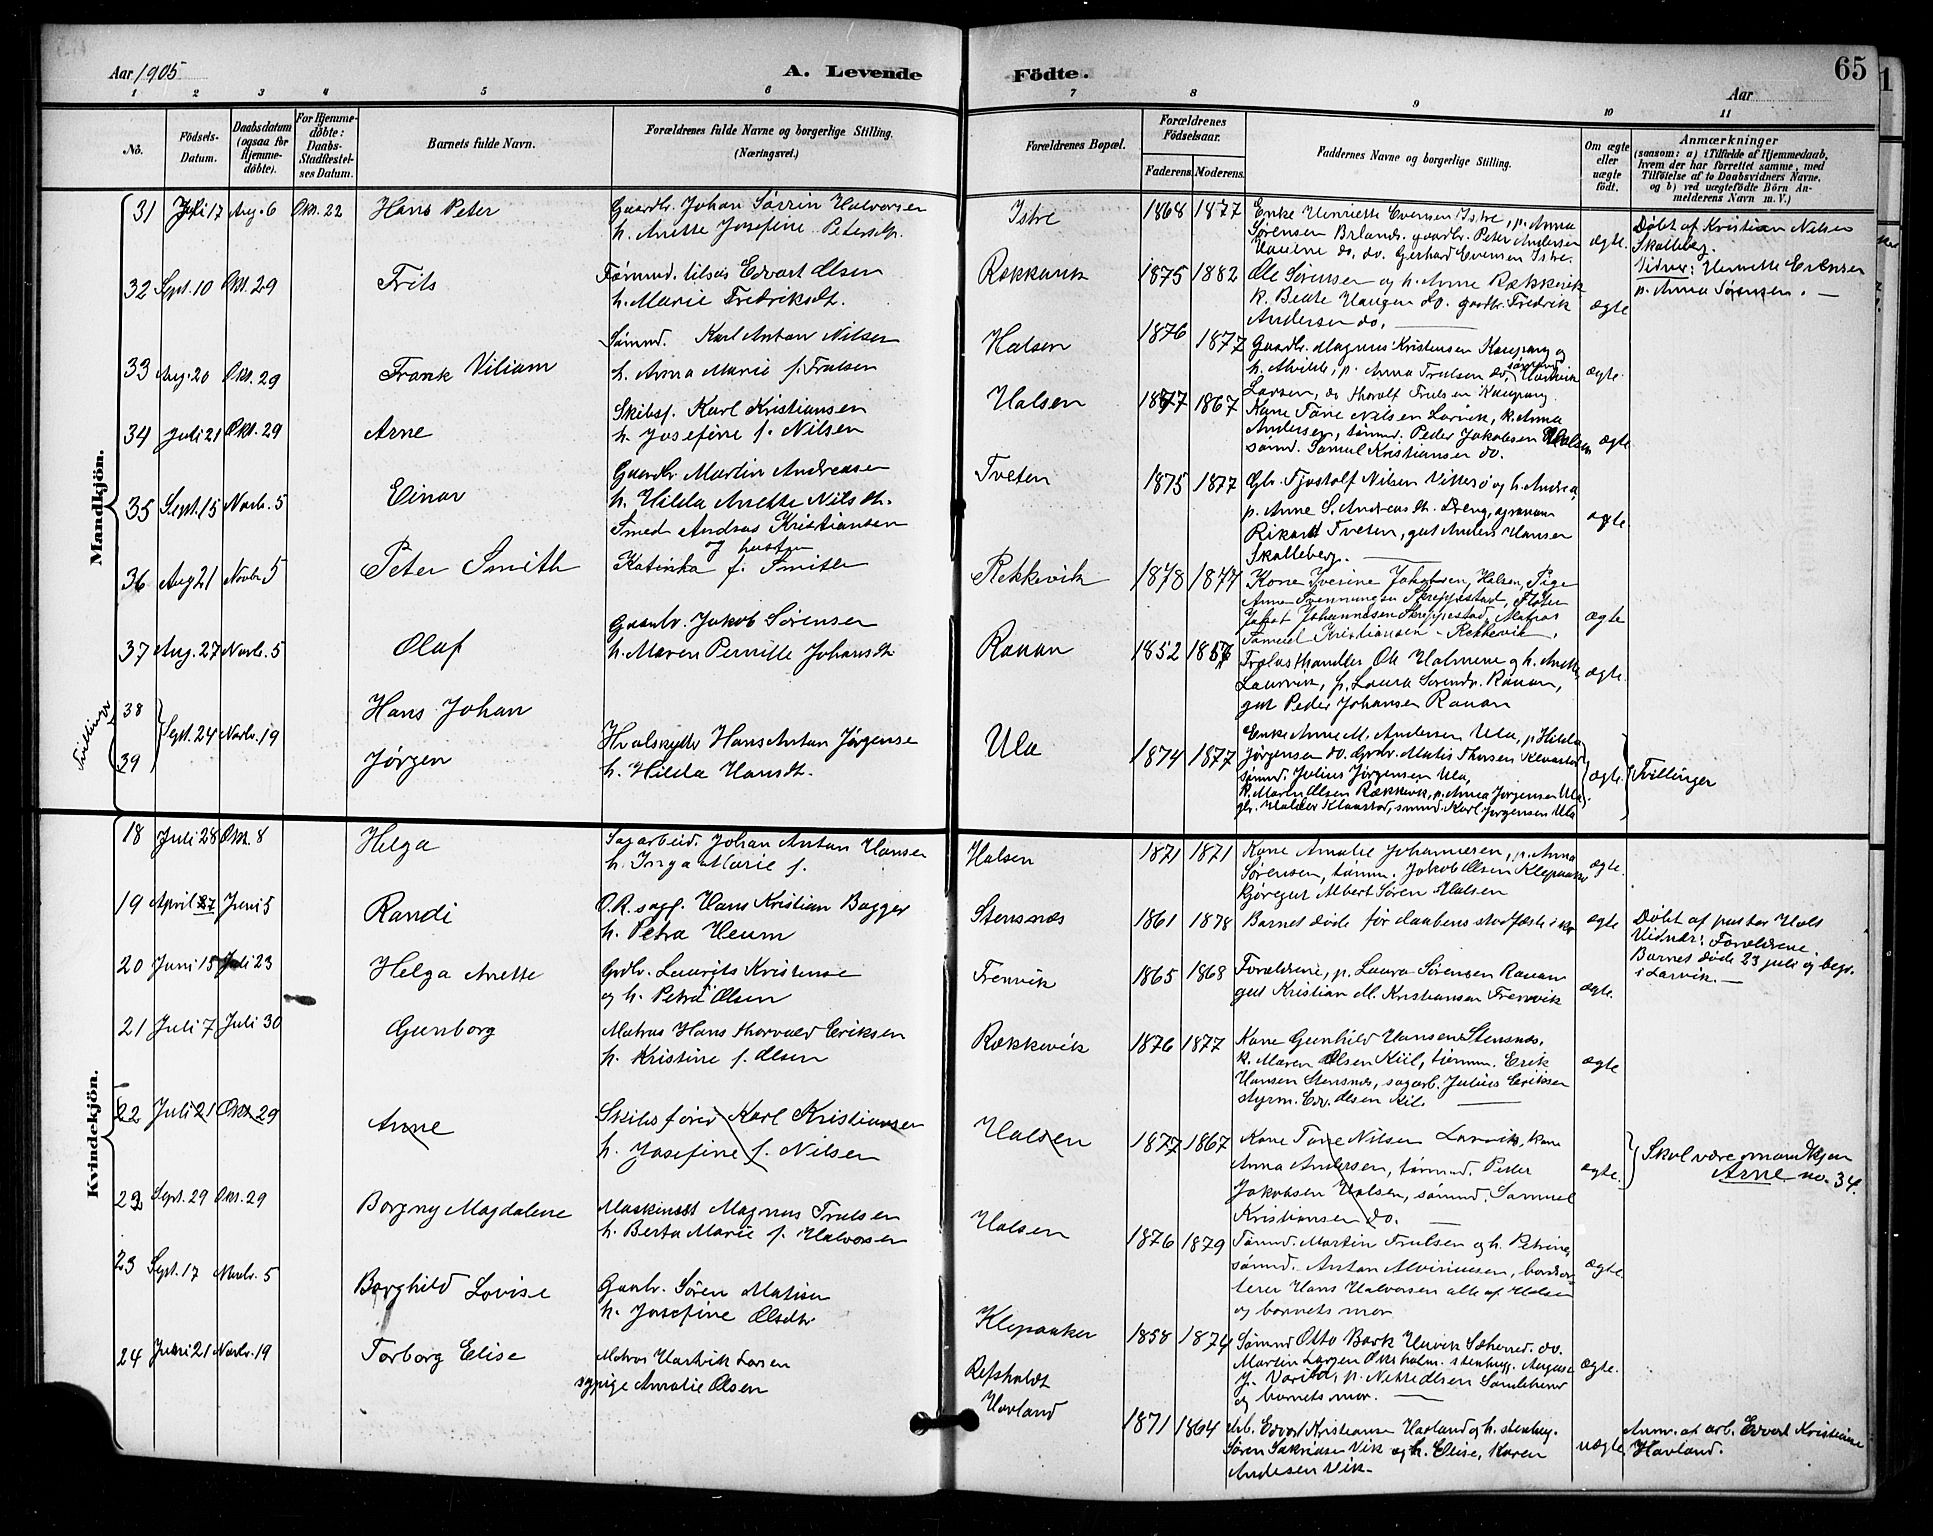 65
Aar 1905
A. Levende
Födte.
Aar
1 2 3 4 5 6 7 8 9 10 11
No.
Födsels-Datum.
Daabsdatum (ogsaa for Hjemme-döbte).
For Hjemme-döbte: Daabs-Stadfæstel-ses Datum.
Barnets fulde Navn.
Forældrenes fulde Navne og borgerlige Stilling.
(Næringsvei.)
Forældrenes Bopæl.
Forældrenes Födselsaar.
Faderens. Moderens.
Faddernes Navne og borgerlige Stilling.
Om ægte eller uægte födt.
Anmærkninger
(saasom: a) i Tilfælde af Hjemmedaab, hvem der har forrettet samme, med Tilföielse af to Daabsvidners Navne, og b) ved uægtefödte Börn An-melderens Navn m. V.)
Mandkjön.
31 Juli 17 Aug. 6 Okt. 22 Hans Peter
Gaardbr. Johan Sørrin Halvorsen
h. Anette Josefine Petersdt.
Istre 1868 1877
Enke Henriette Evensen Istre, p. Anna
Sørensen Brlands. gaardbr. Peter Andersen
do. do. Gerhard Evensen Istre.
ægte.
Døbt af Kristian Nilsen
Skalleberg.
Vidner: Henriette Evensen
p. Anna Sørensen. —
32 Sept. 10 Okt. 29 Frits
Tømmd. Edvart Olsen
h. Marie Fredriksdt.
Rækkevik 1875 1882
Ole Sørensen og h. Anne Rækkevik
k. Beate Haugen do. gaardbr. Fredrik
Andersen do.
ægte
33 Aug. 20 Okt. 29 Frank Viliam
Sømnd. Karl Anton Nilsen
h. Anna Marie f. Trulsen
Halsen 1876 1877
Gaardbr. Magnus Kristensen Kaupang og
h. Alvilde, p. Anna Trulsen do, sømnd Hartvik
Larsen, do Thoralf Trulsen Kaupang.
ægte.
34 Juli 21 Okt. 29 Arne
Skibsf. Karl Kristiansen
h. Josefine f. Nilsen
Halsen 1877 1867
Kone Tone Nilsen Larvik, k. Anna
Andersen, tømmd. Peder Jakobsen Halsen
sømd. Samuel Kristiansen do.
ægte
35 Sept. 15 Novbr. 5 Einar
Gaardbr Martin Andreasen
h. Hilda Anette Nilsdt.
Tveten 1875 1877
Gbr. Tjostolf Nilsen Vitersø og h. Andrea,
p. Anne S. Andreasdt. Dreng,
Rikard Tveten, gut Anders Hansen
Skalleberg.
ægte
36 Aug 21 Novbr 5 Peter Smith
Smed Andreas Kristiansen
og hustru
Katinka f. Smith
Rekkevik 1878 1877
Kone Iverine Jakobsen, Halsen, Pige
Anna Svenningsen Skreppestad, Fløter
Jakob Johannessen Skreppestad, Matros
Samuel Kristiansen - Rekkevik.
ægte
37 Aug. 27 Novbr. 5 Olaf
Gaardbr. Jakob Sørensen
h. Maren Pernille Johansdt.
Rauan 1852 1856
Trælasthandler Ole Halmene og h. Anette
Laurvik, p. Laura Sørensdt. Rauan,
gut Peder Johansen Rauan
ægte.
Tvillinger
38 Hans Johan
39 Sept. 24 Novbr. 19 Jørgen
Hvalskytte Hans Anton Jørgensen
h. Hilda Hansdt.
Ula 1874 1877
Enke Anne M. Andersen Ula, p. Hilda
Jørgensen do. Grdbr. Matis Thorsen Klaastad
sømnd. Julius Jørgensen Ula,
K. Maren Olsen Rækkevik, p. Anna Jørgensen Ula
gbr. Halvor Klaastad, sømnd. Karl Jørgensen Ula
ægte. Tvillinger
Kvindekjön.
18 Juli 28 Okt. 8 Helga
Sagarbeid. Johan Anton Hansen
h. Inga Marie f.
Halsen 1871 1871
Kone Amalie Johannesen, p. Anna
Sørensen, tømm. Jakob Olsen Klepaaker
kjøregut Albert Søren Halsen
ægte.
19 April 27 Juni 5 Randi
O.R.sagf. Hans Kristian Bagger
h. Petra Heum
Stensnæs 1861 1878
Barnet døde før daabens stadfæstelse
ægte
Døbt af pastor Holt
Vidner: Forældrene
Barnet døde 23 juli og begr.
i Larvik. —
20 Juni 15 Juli 23 Helga Anette
Grdbr. Laurits Kristensen
og h. Petra Olsen
Frenvik 1865 1868
Forældrene, p. Laura Sørensen Rauan
gut Kristian M. Kristiansen Frenvik
ægte.
21 Juli 7 Juli 30 Gunborg
Matros Hans Thorvald Eriksen
h. Kristine f. Olsen
Rækkevik 1876 1877
Kone Gunhild Hansen Stensnæs.
k. Maren Olsen Kiil, tømm. Erik
Hansen Stensnæs, sagarb. Julius Eriksen
styrm. Edv. Olsen Kil.
ægte
22 Juli 21 Okt 29 Arne
Skibsfører Karl Kristiansen
h. Josefine f. Nilsen
Halsen 1877 1867
Kone Tone Nilsen Larvik, kone
Anna Andersen, tømmd. Peder
Jakobsen Halsen, sømnd. Samuel
Kristiansen do.
ægte.
Skal være mandkjøn
Arne no. 34.
22 Sept. 29 Okt. 29 Borgny Magdalene
Maskinist Magnus Trulsen
h. Berta Marie f. Halvorsen
Halsen 1876 1879
Tømmd. Martin Trulsen og h. Petrine,
sømnd. Anton Alvinusen,
Hans Halvorsen alle af Halsen
og barnets mor
ægte
23 Sept. 17 Novbr. 5 Borghild Lovise
Gaardbr. Søren Matisen
h. Josefine Olsdtr
Klepaaker 1858 1874
Sømnd. Otto Bark do.
Martin Larsen stenhugg. August
J. Varild, p. Olsen
og barnets mor.
ægte.
24 Juni 21 Novbr. 19 Torborg Elise
Matros Hartvik Larsen
sypige Amalie Olsen
Refsholdt
Havland
1871 1864
Arb. Edvard Kristiansen Havland og h. stenhug.
Søren Sakriasen Vik og h. Elise, Karen
Andersen Vik.
uægte
Anm. af arb. Edvard Kristiansen
Havland.